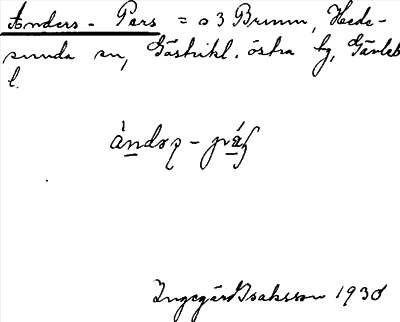 Anders-Pers = a 3 Brunn, Hede-
sunda sn, Gästrikl. östra tg, Gävleb
l.
Ingegärd Isaksson 1930